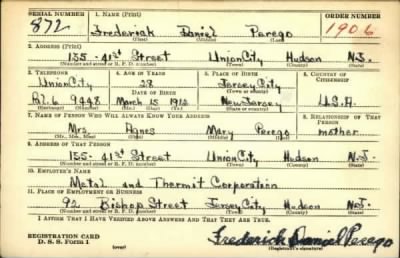 SERIAL NUMBER 1. NAME (Print) ORDER NUMBER
872 Frederick Daniel Perego 1906
(First) (Middle) (Last)
2. ADDRESS (Print)
155 - 41st Street Union City Hudson N.J.
(Number and street or R. F. D. number) (Town) (County) (State)
3. TELEPHONE 4. AGE IN YEARS 5. PLACE OF BIRTH 6. COUNTRY OF CITIZENSHIP
Union City 28 Jersey City
DATE OF BIRTH
Pal. 6 9448 March 15 1912 New Jersey U.S.A.
7. NAME OF PERSON WHO WILL ALWAYS KNOW YOUR ADDRESS 8. RELATIONSHIP OF THAT PERSON
Mrs. Agnes Mary Perego mother
(Mr., Mrs., Miss) (First) (Middle) (Last)
9. ADDRESS OF THAT PERSON
155 - 41st Street Union City Hudson N.J.
(Number and street or R. F. D. number) (Town) (County) (State)
10. EMPLOYER'S NAME
Metal and Thermit Corporation
11. PLACE OF EMPLOYMENT OR BUSINESS
92 Bishop Street Jersey City Hudson N.J.
(Number and street or R. F. D. number) (Town) (County) (State)
I AFFIRM THAT I HAVE VERIFIED ABOVE ANSWERS AND THAT THEY ARE TRUE.
REGISTRATION CARD Frederick Daniel Perego
D. S. S. Form 1 (over) (Registrant's signature)